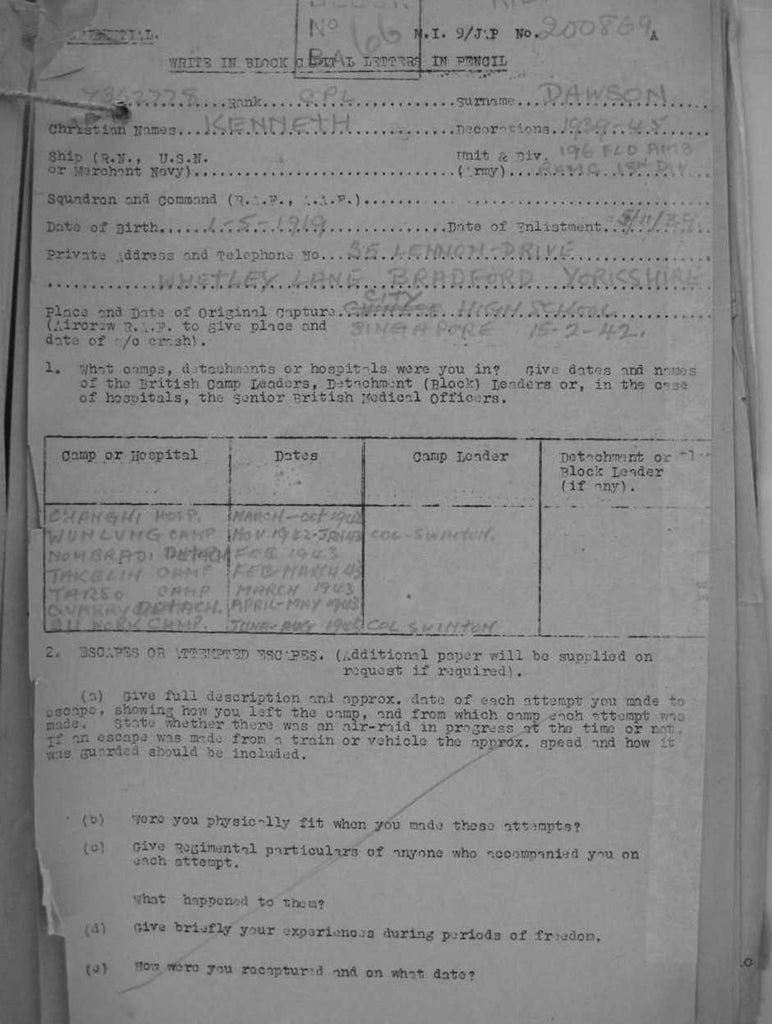 No 66
M.I. 9/JAP No. 200869 A
WRITE IN BLOCK CAPITAL LETTERS IN PENCIL
Rank CPL Surname DAWSON
Christian Names KENNETH Decorations 1939-45
Ship (R.N., U.S.N. Unit & Div. 196 FLD AMB
or Merchant Navy) (Army) RAMC 18TH DIV
Squadron and Command (R.A.F., A.A.F.)
Date of Birth 1-5-1919 Date of Enlistment
Private Address and Telephone No. 35 LENNON-DRIVE
WHETLEY LANE BRADFORD YORKSHIRE
CITY
Place and Date of Original Capture CHINESE HIGH SCHOOL
(Aircrew R.A.F. to give place and SINGAPORE 15-2-42.
date of a/c crash).
1. What camps, detachments or hospitals were you in? Give dates and names
of the British Camp Leaders, Detachment (Block) Leaders or, in the case
of hospitals, the Senior British Medical Officers.
Camp or Hospital Dates Camp Leader Detachment or
Block Leader
(if any).
CHANGHI HOSP. MARCH-OCT 1942
WUNLUNG CAMP NOV 1942-JAN 43 COL-SWINTON.
NOMBRADI DETACH FEB 1943
TAKELIN CAMP FEB-MARCH 43
TARSO CAMP MARCH 1943
QUARRY DETACH. APRIL-MAY 1943
211 WORK CAMP. JUNE-AUG COL SWINTON
2. ESCAPES OR ATTEMPTED ESCAPES. (Additional paper will be supplied on
request if required).
(a) Give full description and approx. date of each attempt you made to
escape, showing how you left the camp, and from which camp each attempt was
made. State whether there was an air-raid in progress at the time or not.
If an escape was made from a train or vehicle the approx. speed and how it
was guarded should be included.
(b) Were you physically fit when you made these attempts?
(c) Give Regimental particulars of anyone who accompanied you on
each attempt.
What happened to them?
(d) Give briefly your experiences during periods of freedom.
(e) How were you recaptured and on what date?